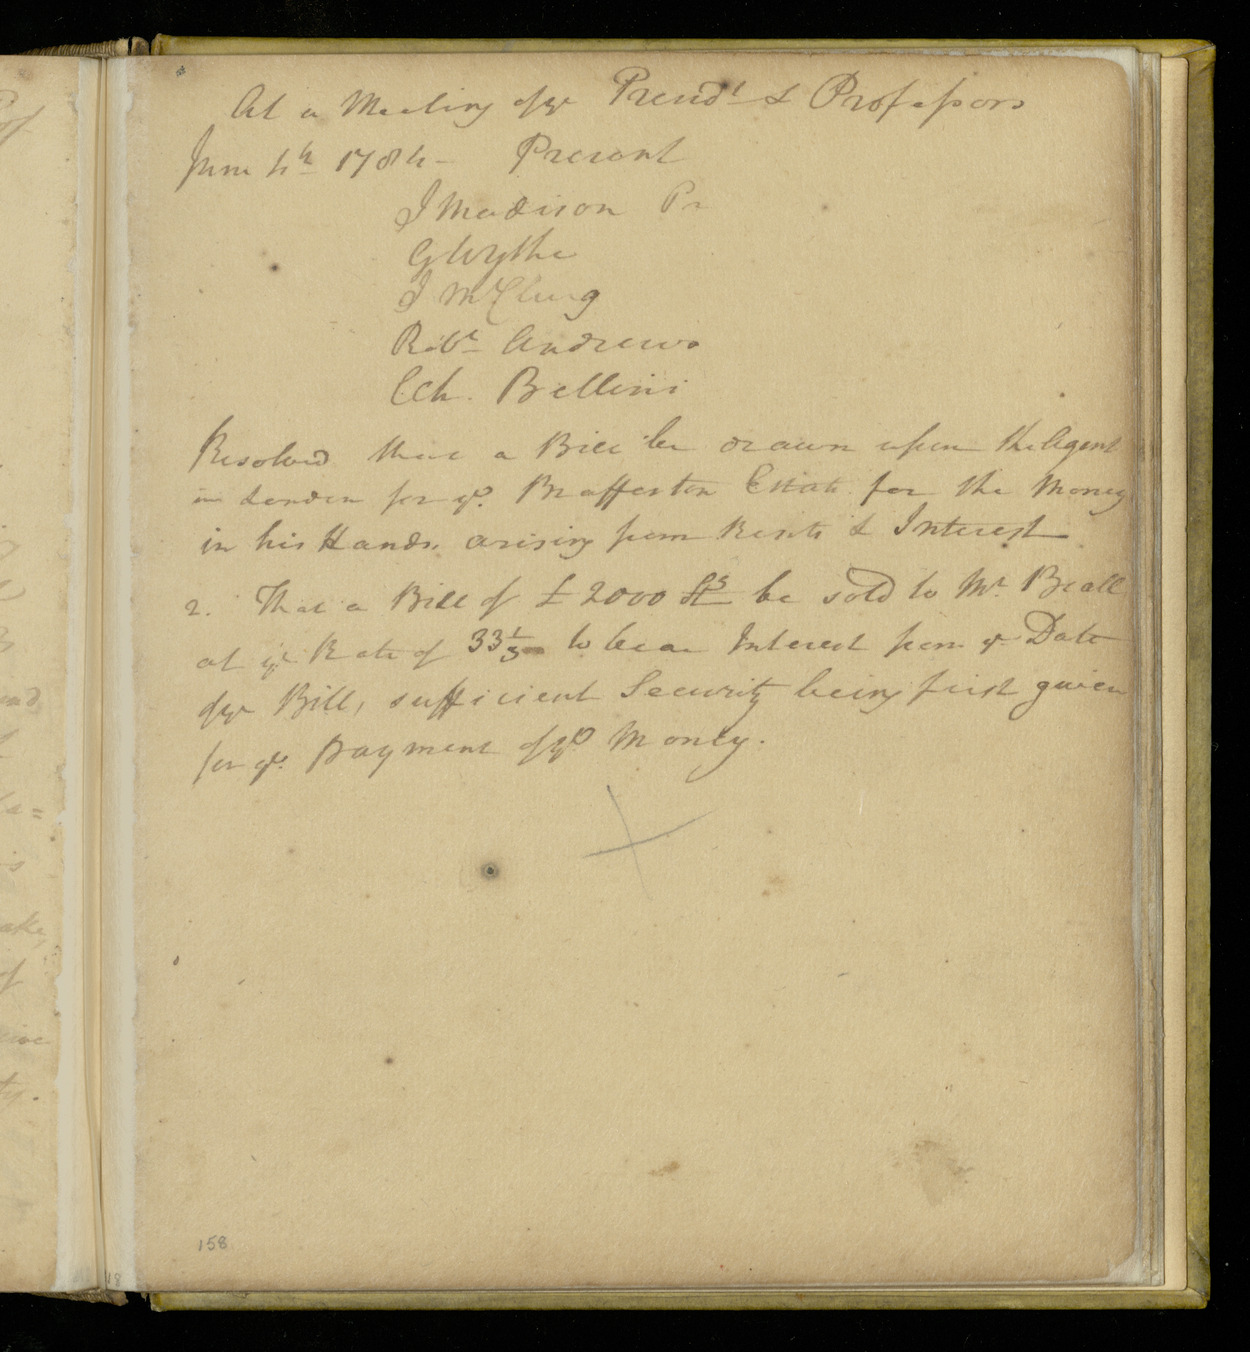 At a Meeting of ye Presidt & Professors
June 4th 1784 - Present
J Madison Pr
G Wythe
J McClurg
Robt Andrews
Ch. Bellini
Resolved that a Bill be drawn upon the Agent
in London for ye Brafferton Estate for the Money
in his Hands arising from Rents & Interest
2. That a Bill of £ 2000 be sold to Mr Beall
at ye Rate of 33 1/3 to bear Interest from ye Date
of ye Bill, sufficient Security being first given
for ye Payment of ye Money.
158